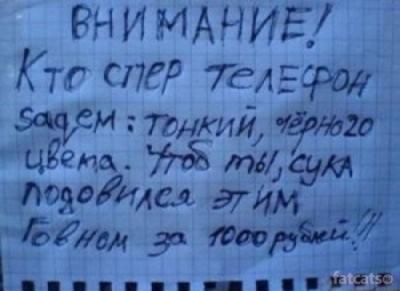 ВНИМАНИЕ!
Кто спер телефон
sagem: тонкий, чёрного
цвета. Чтоб ты, сука
подовился этим
Говном за 1000 рублей!!!
fatcats